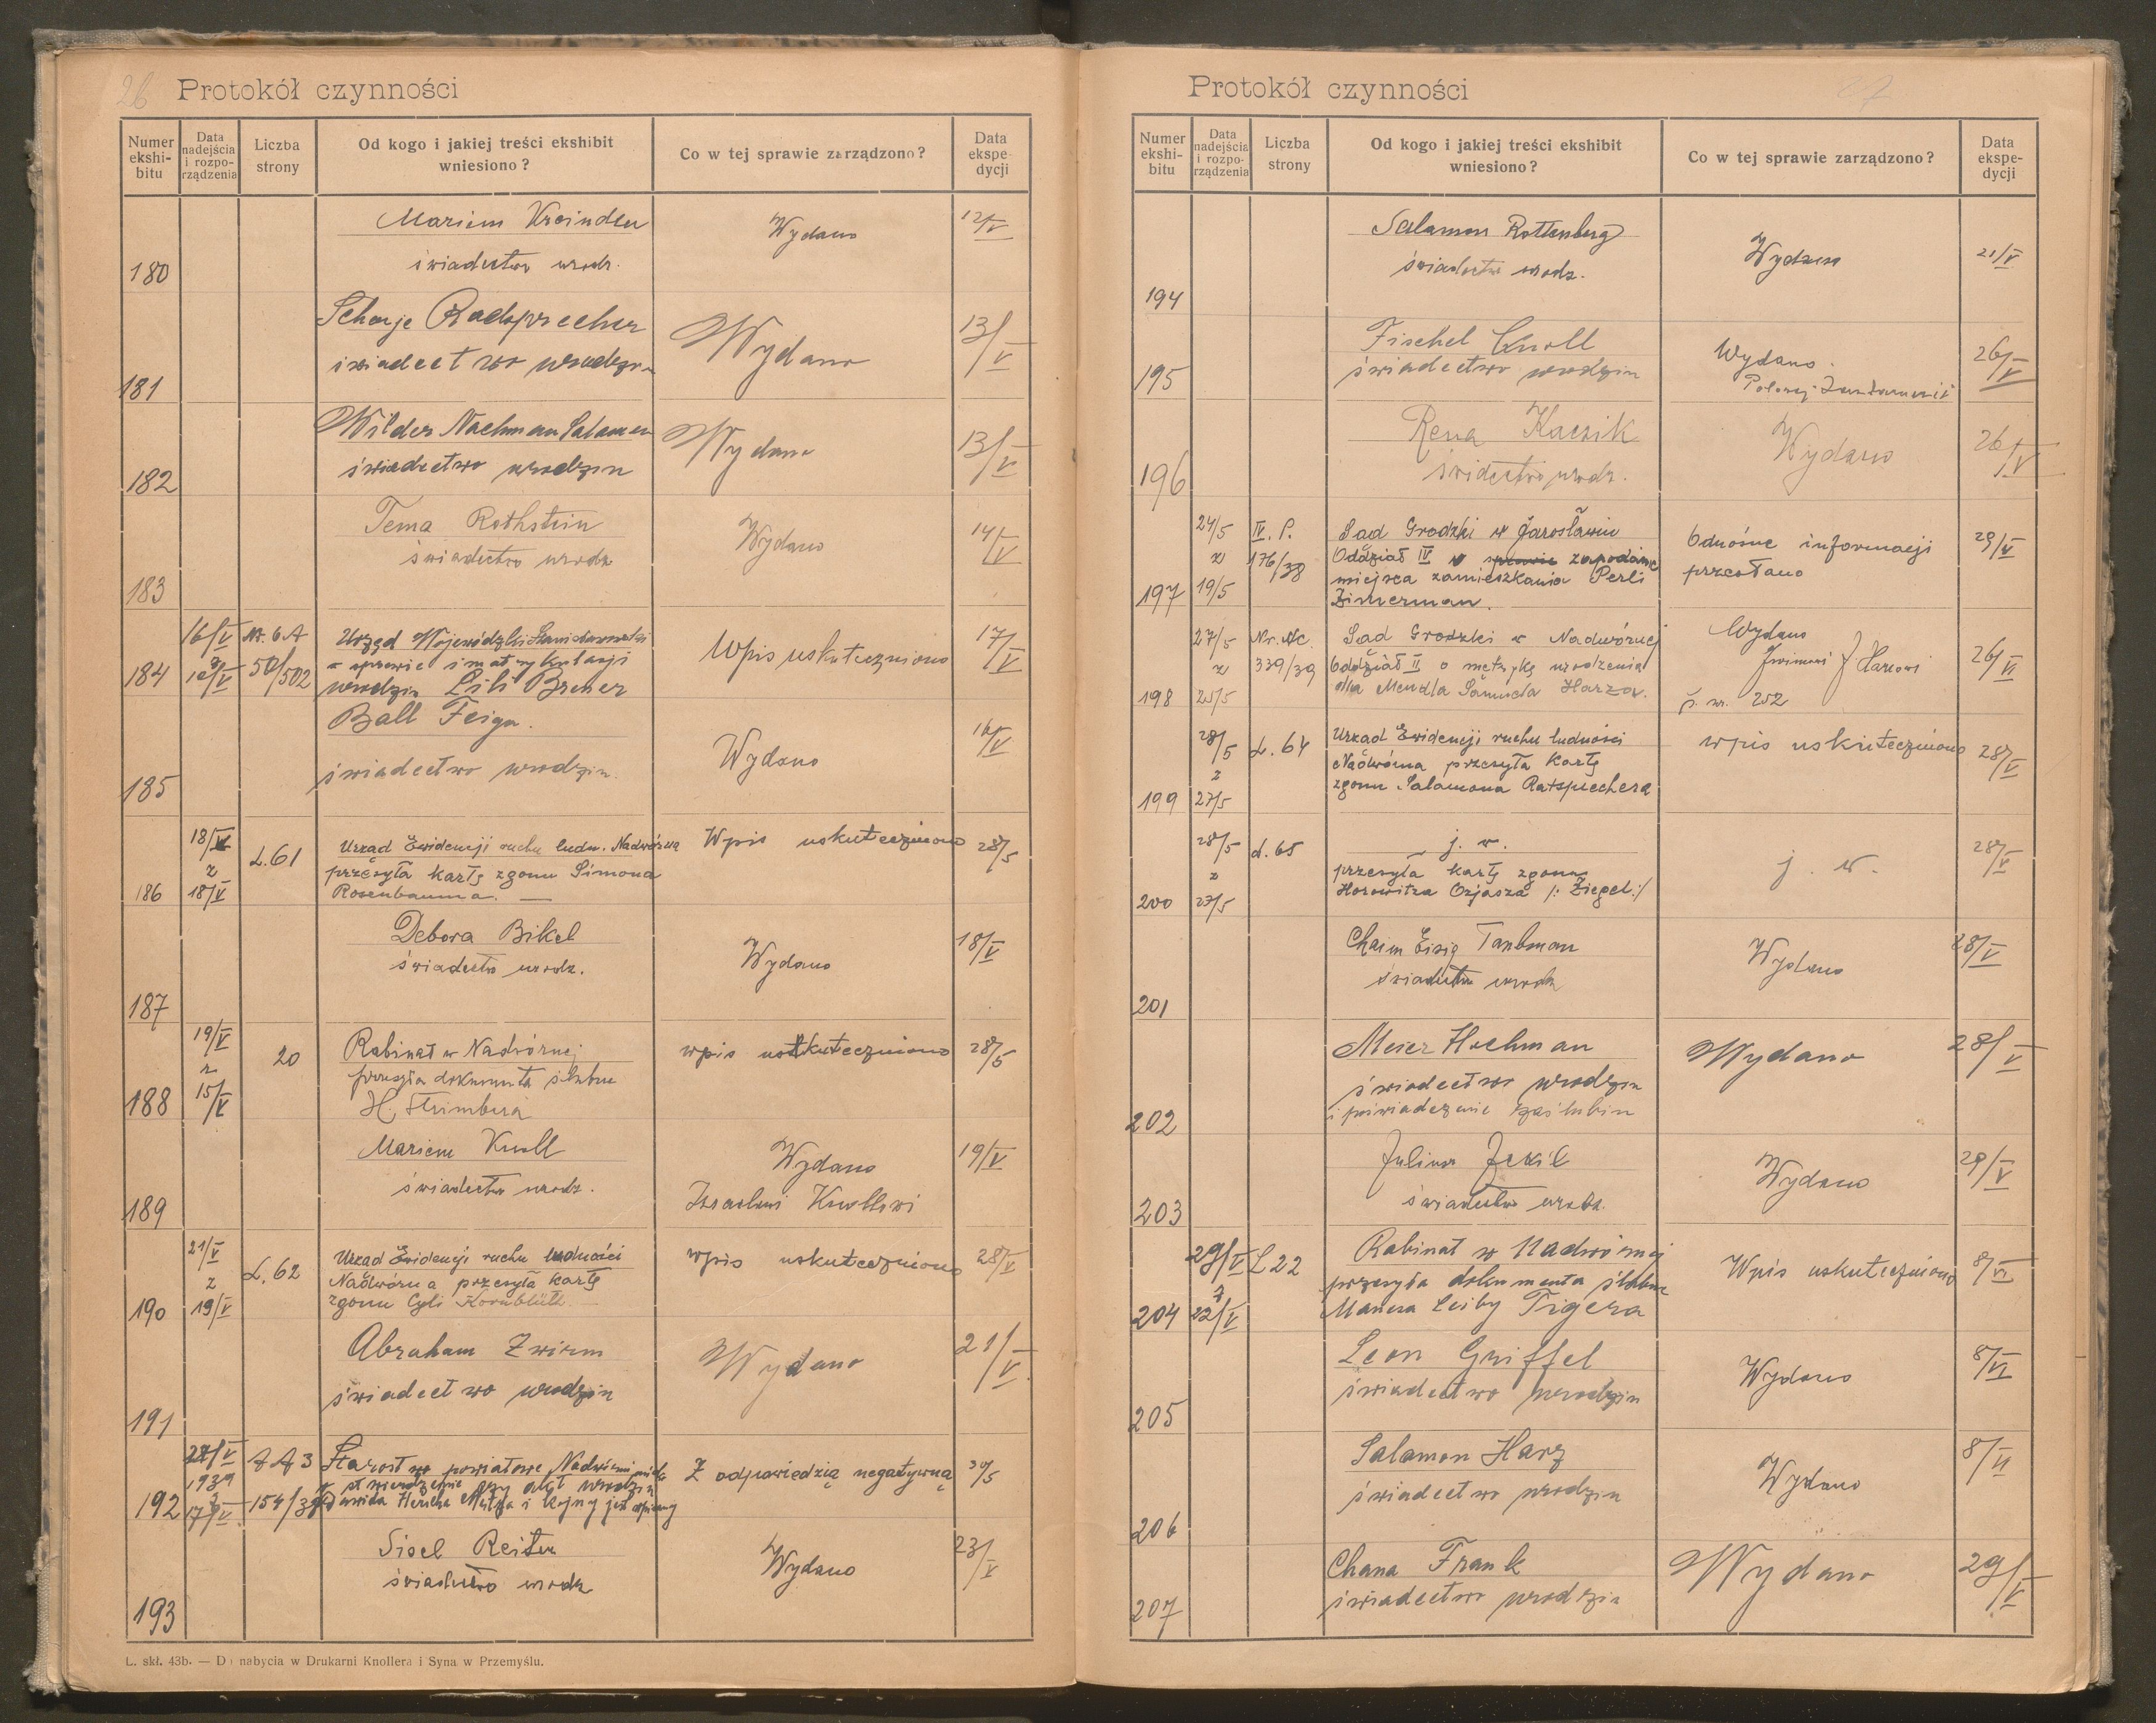 26
Protokół czynności
Numer ekshi-bitu
Data nadejścia i rozpo-rządzenia
Liczba strony
Od kogo i jakiej treści ekshibit wniesiono?
Co w tej sprawie zarządzono?
Data ekspe-dycji
180 Mariem Kreindler Wydano 12/V
świadectwo urodz.
181 Scheje Radsprecher Wydano 13/V
świadectwo urodzin
182 Wilder Nachman Salamon Wydano 13/V
świadectwo urodzin
183 Tema Rothstein Wydano 14/V
świadectwo urodz
184 16/V Nr. 6 A Urząd Wojewódzki Stanisławowski Wpis uskuteczniono 17/V
50/502 w sprawie imatrykulacji
urodzin Lili Breuer
185 Ball Feiga. Wydano 16/V
świadectwo urodzin.
186 18/V L.61 Urząd Ewidencji ruchu ludn. Nadwórna Wpis uskuteczniono 28/5
z przesyła kartę zgonu Simona
18/V Rosenbauma. —
187 Debora Bikel Wydano 18/V
świadectwo urodz.
188 19/V 20 Rabinat w Nadwórnej wpis uskuteczniono 28/5
z przesyła dokumenta ślubne
15/V H.
189 Mariem Knoll Wydano 19/V
świadectwo urodz. Izraelowi Knollowi
190 21/V L. 62 Urząd Ewidencji ruchu ludności wpis uskuteczniono 28/V
z Nadwórna przesyła kartę
19/V zgonu Cyli Kornblüth —
191 Abraham Zwirm Wydano 21/V
świadectwo urodzin
192 22/V A A 3 Starostwo powiatowe Nadwórna Z odpowiedzią negatywną 30/5
1939 o stwierdzenie czy akt urodzin
17/V 154/39 Dawida Hersza i jest wpisany
193 Sisel Reiter Wydano 23/V
świadectwo urodz
L. skł. 43b. — Do nabycia w Drukarni Knollera i Syna w Przemyślu.
27
Protokół czynności
Numer ekshi-bitu
Data nadejścia i rozpo-rządzenia
Liczba strony
Od kogo i jakiej treści ekshibit wniesiono?
Co w tej sprawie zarządzono?
Data ekspe-dycji
194 Salamon Rottenberg Wydano 21/V
świadectwo urodz.
195 Fischel Knoll Wydano. 26/V
świadectwo urodzin
196 Rena Kaczik Wydano 26/V
świdectwo urodz.
197 24/5 IV. P. Sąd Grodzki w Jarosławiu Odnośne informacji 29/V
z 176/38 Oddział IV o sprawie zapodanie przesłano
19/5 miejsca zamieszkania Perli
Zimerman.
198 27/5 Nr. Nc. Sąd Grodzki w Nadwórnej Wydano 26/VI
z 339/39 Oddział II o metrykę urodzenia J Harzowi
25/5 dla Mendla Samuela Harza. p. nr. 252
199 28/5 L. 64 Urząd Ewidencji ruchu ludności wpis uskuteczniono 28/V
z Nadwórna przesyła kartę
27/5 zgonu Salamona Ratsprechera
200 28/5 L. 65 j. w. j. w. 28/V
z przesyła kartę zgonu
27/5 Horowitza Ozjasza /: Ziegel:/
201 Chaim Eisig Taubman Wydano 28/V
świadectwo urodz
202 Meier Hochman Wydano 28/V
świadectwo urodzin
i poświadczenie zaślubin
203 Juliusz Jekil Wydano 29/V
świadectwo urodz.
204 29/V L 22 Rabinat w Nadwórnej Wpis uskuteczniono 8/VI
z przesyła dokumenta ślubne
22/V Manesa Leiby Tigera
205 Leon Griffel Wydano 8/VI
świadectwo urodzin
206 Salamon Harz Wydano 8/VI
świadectwo urodzin
207 Chana Frank Wydano 29/V
świadectwo urodzin